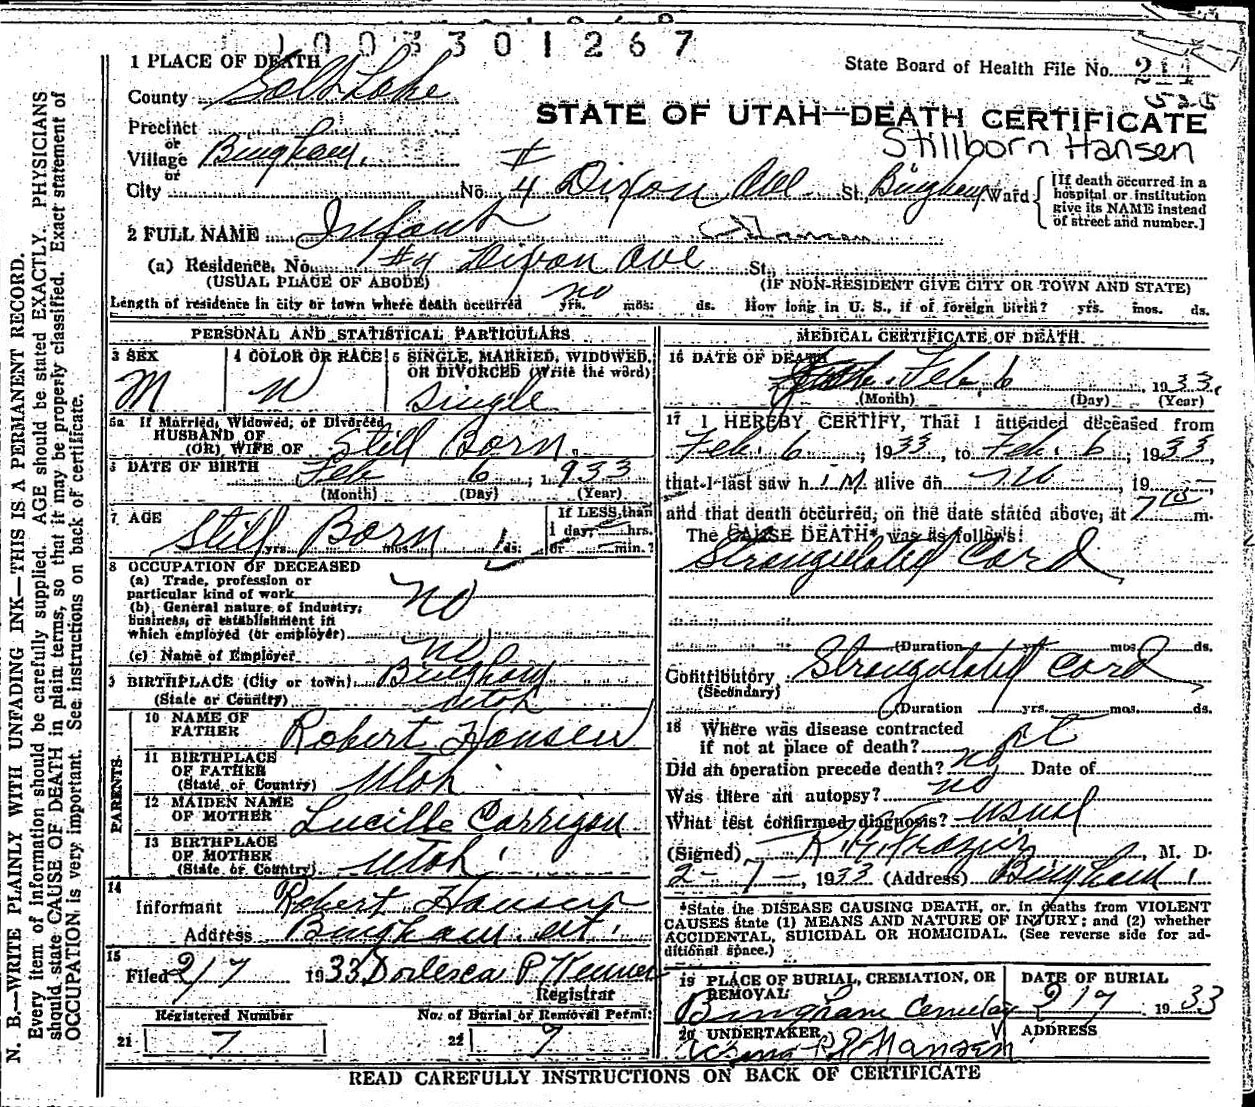 1003301267
1 PLACE OF DEATH
State Board of Health File No. 211
525
County Salt Lake
STATE OF UTAH—DEATH CERTIFICATE
Stillborn Hansen
Precinct
or
Village Bingham.
or
City No. #4 Dixon Ave St., Bingham Ward
[If death occurred in a
hospital or institution
give its NAME instead
of street and number.]
2 FULL NAME Infant Hansen
(a) Residence, No. #4 Dixon Ave St.,
(USUAL PLACE OF ABODE) (IF NON-RESIDENT GIVE CITY OR TOWN AND STATE)
Length of residence in city or town where death occurred no yrs. mos. ds. How long in U. S., if of foreign birth? yrs. mos. ds.
PERSONAL AND STATISTICAL PARTICULARS
3 SEX
M
4 COLOR OR RACE
W
5 SINGLE, MARRIED, WIDOWED,
OR DIVORCED (Write the word)
Single
5a If Married, Widowed, or Divorced
HUSBAND OF
(OR) WIFE OF Still Born.
6 DATE OF BIRTH Feb 6, 1933
(Month) (Day) (Year)
7 AGE
Still Born
yrs. mos. ds.
If LESS than
1 day, hrs.
or min.?
8 OCCUPATION OF DECEASED
(a) Trade, profession or
particular kind of work no
(b) General nature of industry,
business, or establishment in
which employed (or employer)
(c) Name of Employer no
9 BIRTHPLACE (City or town) Bingham
(State or Country) Utah
PARENTS
10 NAME OF
FATHER Robert Hansen
11 BIRTHPLACE
OF FATHER
(State or Country) Utah.
12 MAIDEN NAME
OF MOTHER Lucille Carrigan
13 BIRTHPLACE
OF MOTHER
(State or Country) Utah.
14
Informant Robert Hansen
Address Bingham. Ut.
15
Filed 2/7 1933
Registrar
Registered Number
21 7
No. of Burial or Removal Permit
22 7
MEDICAL CERTIFICATE OF DEATH
16 DATE OF DEATH
Feb. 6 1933
(Month) (Day) (Year)
17 I HEREBY CERTIFY, That I attended deceased from
Feb. 6, 1933, to Feb. 6, 1933,
that I last saw h im alive on no, 19
and that death occurred, on the date stated above, at 7 m.
The CAUSE DEATH* was as follows:
Strangulated Cord
(Duration yrs. mos. ds.
Contributory Strangulated Cord
(Secondary)
(Duration yrs. mos. ds.
18 Where was disease contracted
if not at place of death?
Did an operation precede death? no Date of
Was there an autopsy? no
What test confirmed diagnosis? usual
(Signed) , M. D.
2-7-, 1933 (Address) Bingham.
*State the DISEASE CAUSING DEATH, or, in deaths from VIOLENT
CAUSES state (1) MEANS AND NATURE OF INJURY; and (2) whether
ACCIDENTAL, SUICIDAL OR HOMICIDAL. (See reverse side for ad-
ditional space.)
19 PLACE OF BURIAL, CREMATION, OR
REMOVAL
Bingham Cemetery
DATE OF BURIAL
2/7 1933
20 UNDERTAKER
Hansen
ADDRESS
READ CAREFULLY INSTRUCTIONS ON BACK OF CERTIFICATE
N. B.—WRITE PLAINLY WITH UNFADING INK—THIS IS A PERMANENT RECORD.
Every item of information should be carefully supplied. AGE should be stated EXACTLY. PHYSICIANS
should state CAUSE OF DEATH in plain terms, so that it may be properly classified. Exact statement of
OCCUPATION is very important. See instructions on back of certificate.